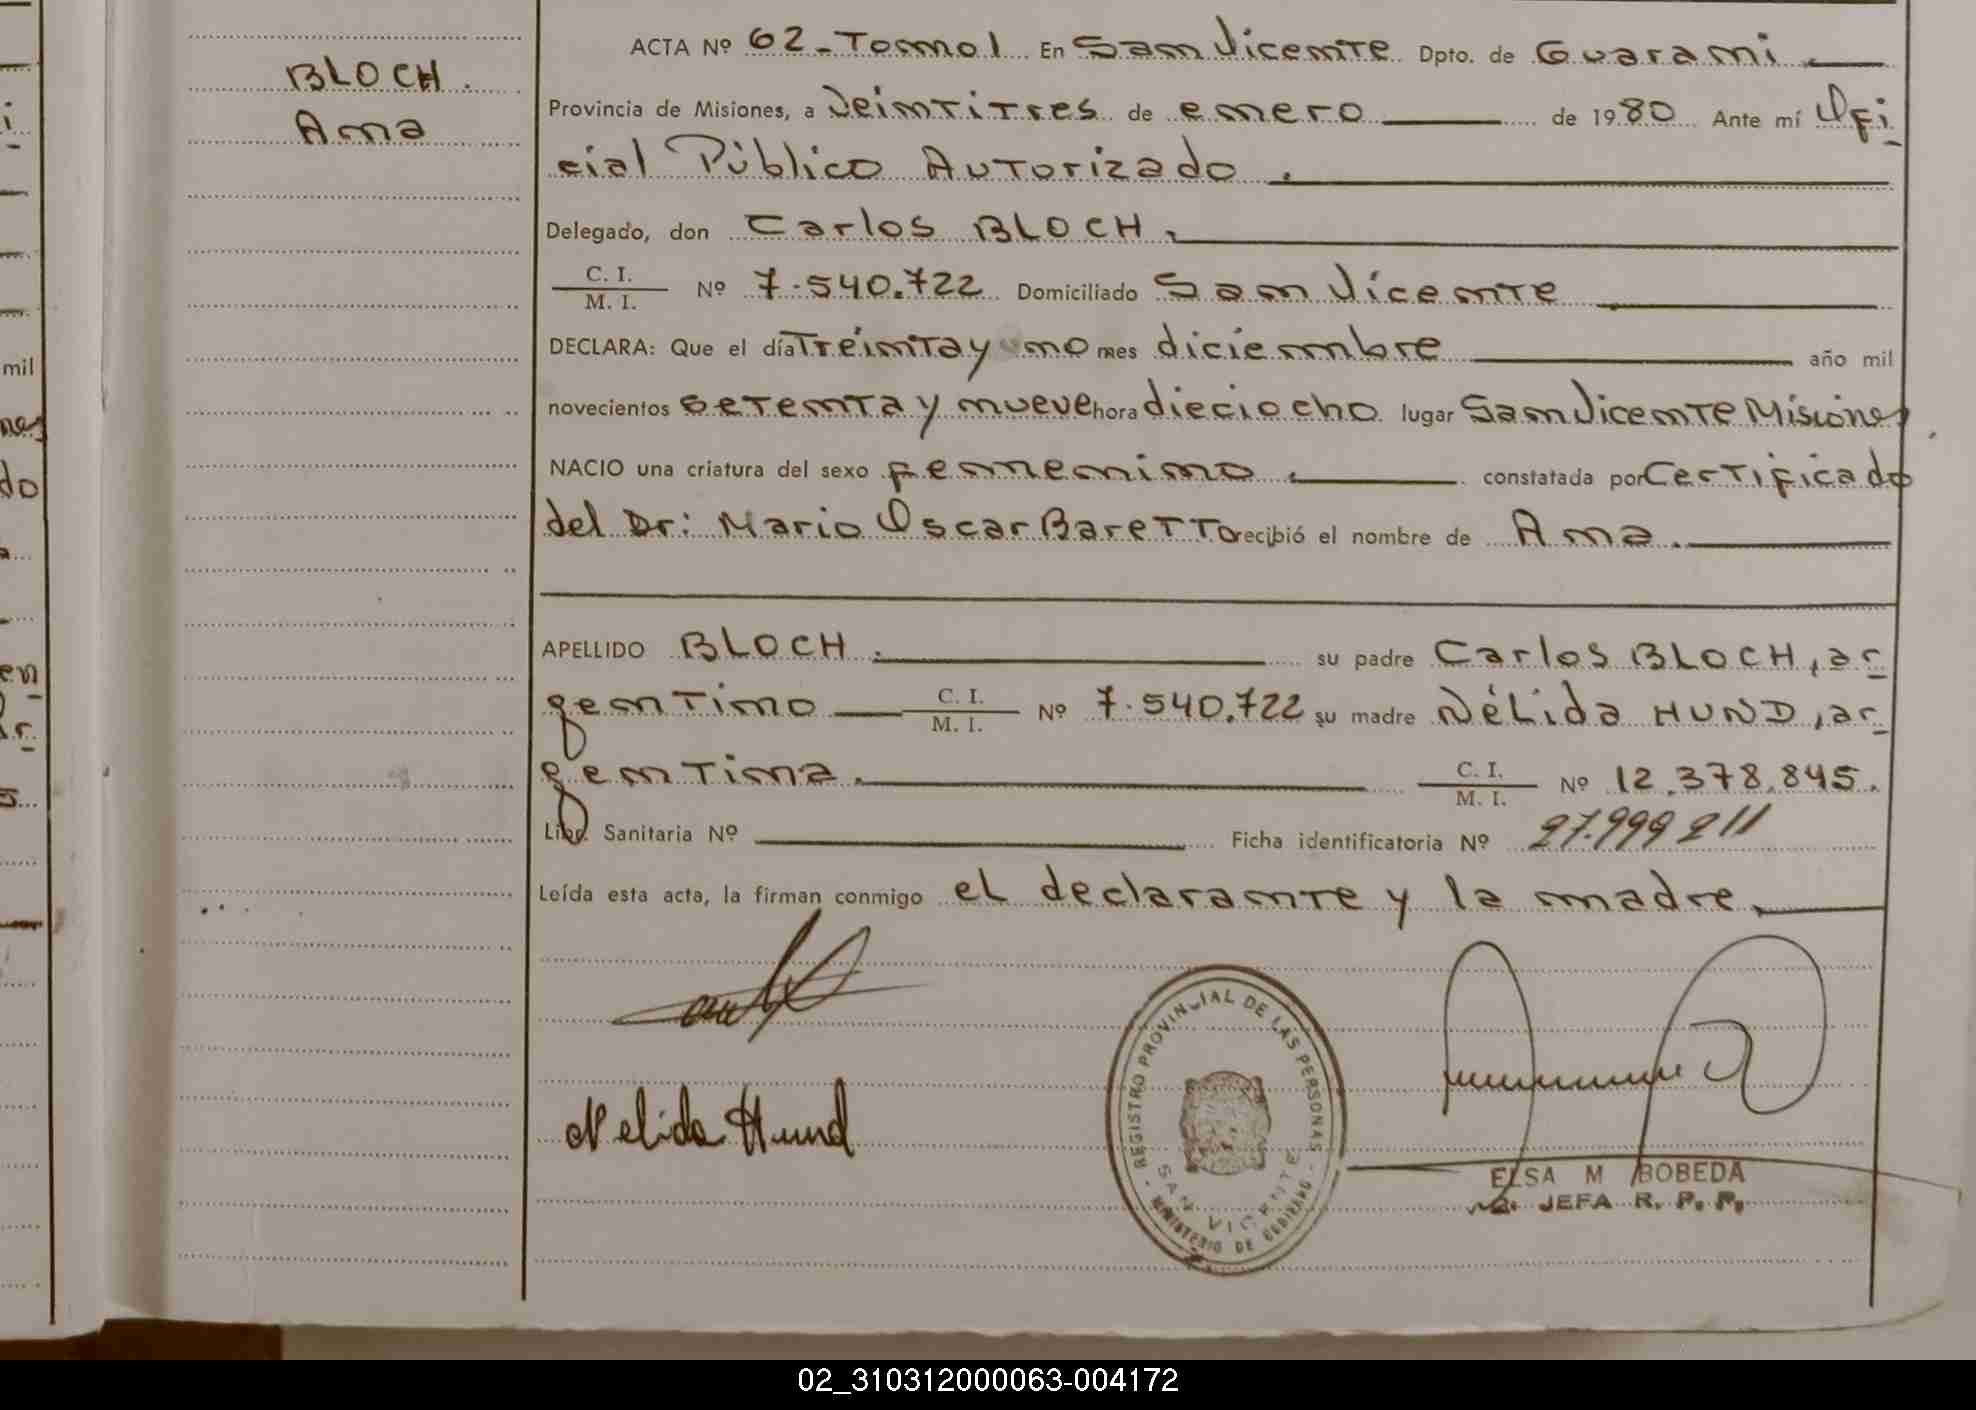 BLOCH.
Ana
ACTA Nº 62-Tomo 1 En San Vicente Dpto. de Guarani
Provincia de Misiones, a Veintitres de enero de 1980 Ante mí Ofi
cial Público Autorizado.
Delegado, don Carlos BLOCH.
C. I.
M. I. Nº 7.540.722 Domiciliado San Vicente
DECLARA: Que el día Treinta y uno mes diciembre año mil
novecientos setenta y nueve hora dieciocho lugar San Vicente Misiones
NACIO una criatura del sexo femenino. constatada por Certificado
del Dr: Mario Oscar Baretto recibió el nombre de Ana.
APELLIDO BLOCH. su padre Carlos BLOCH, ar
gentino C. I. M. I. Nº 7.540.722 su madre NéLida HUND, ar
gentina. C. I. M. I. Nº 12.378.845.
Libr. Sanitaria Nº Ficha identificatoria Nº 27.999211
Leída esta acta, la firman conmigo el declarante y la madre.
Nelida Hund
REGISTRO PROVINCIAL DE LAS PERSONAS
SAN VICENTE
MINISTERIO DE GOBIERNO
ELSA M BOBEDA
JEFA R. P. P.
mil
do
en
02_310312000063-004172